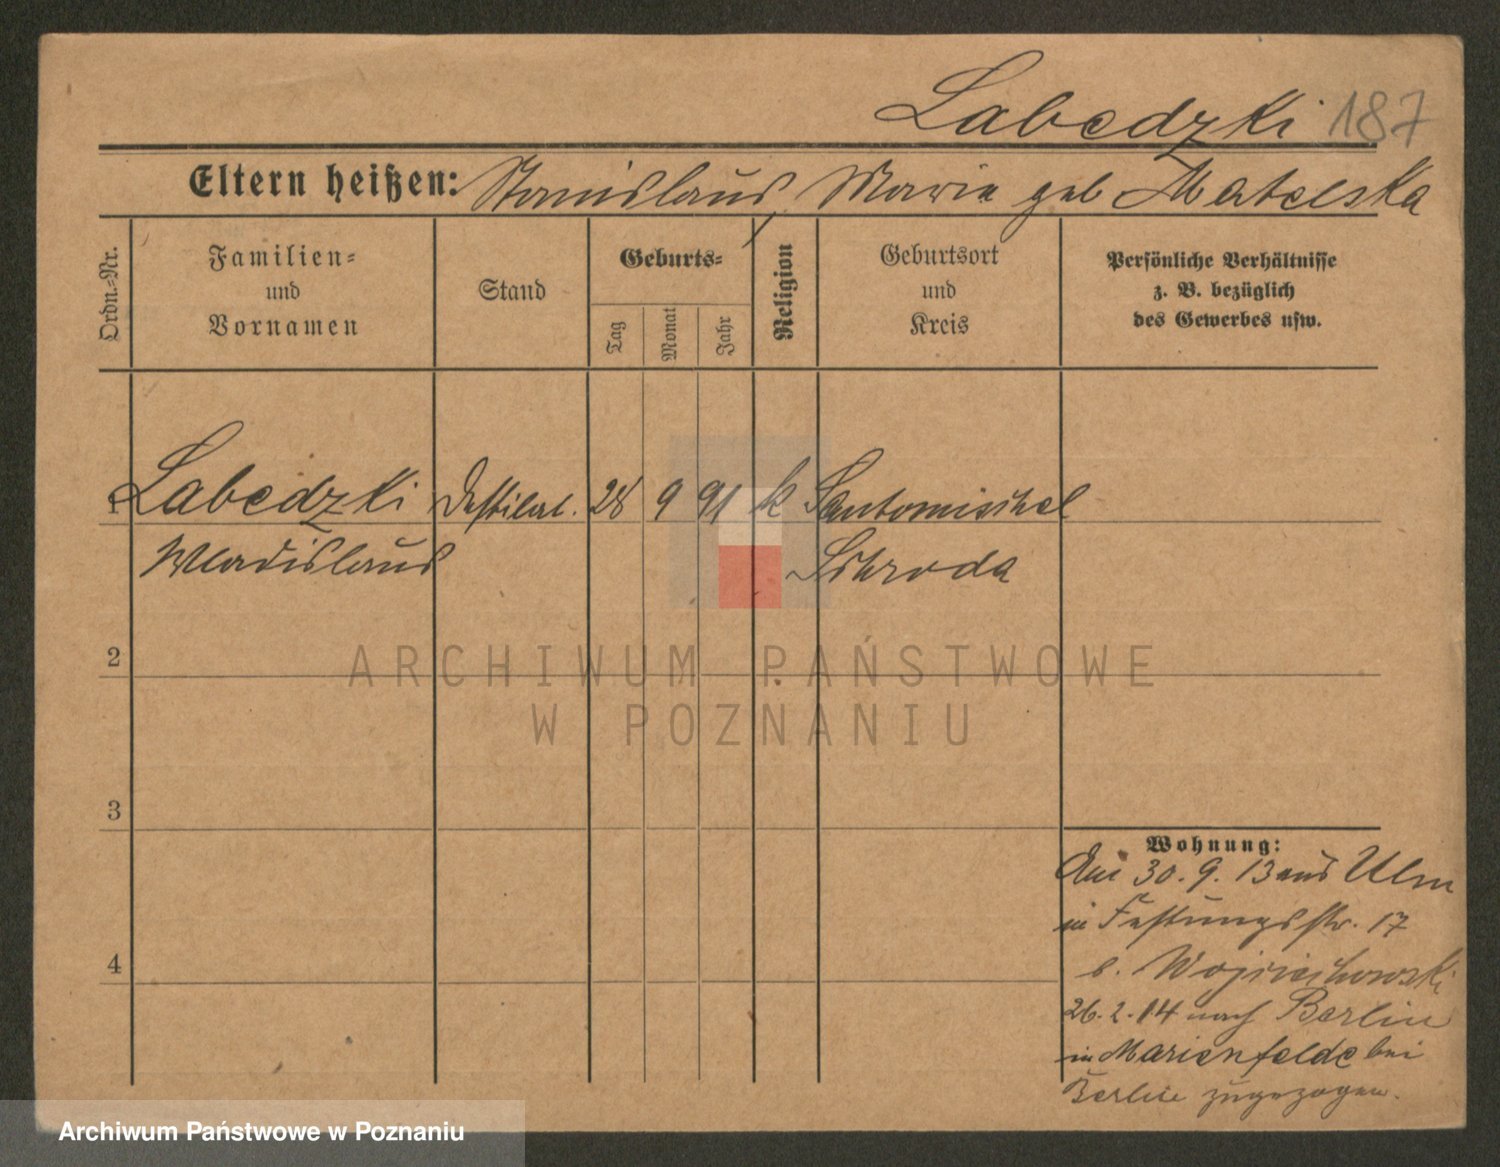 Labedzki 187
Eltern heißen: Stanislaus, Marie geb Matelska
Ordn.-Nr.
Familien-
und
Vornamen
Stand
Geburts-
Tag
Monat
Jahr
Religion
Geburtsort
und
Kreis
Persönliche Verhältnisse
z. B. bezüglich
des Gewerbes usw.
1 Labedzki Destilat. 28 9 91 k Santomischel
Wladislaus Schroda
2
3
4
Wohnung:
30. 9. 13 aus Ulm
in Festungsstr. 17
b. Wojciechowski
26. 2. 14 nach Berlin
in Marienfelde bei
Berlin zugezogen.
ARCHIWUM PAŃSTWOWE
W POZNANIU
Archiwum Państwowe w Poznaniu